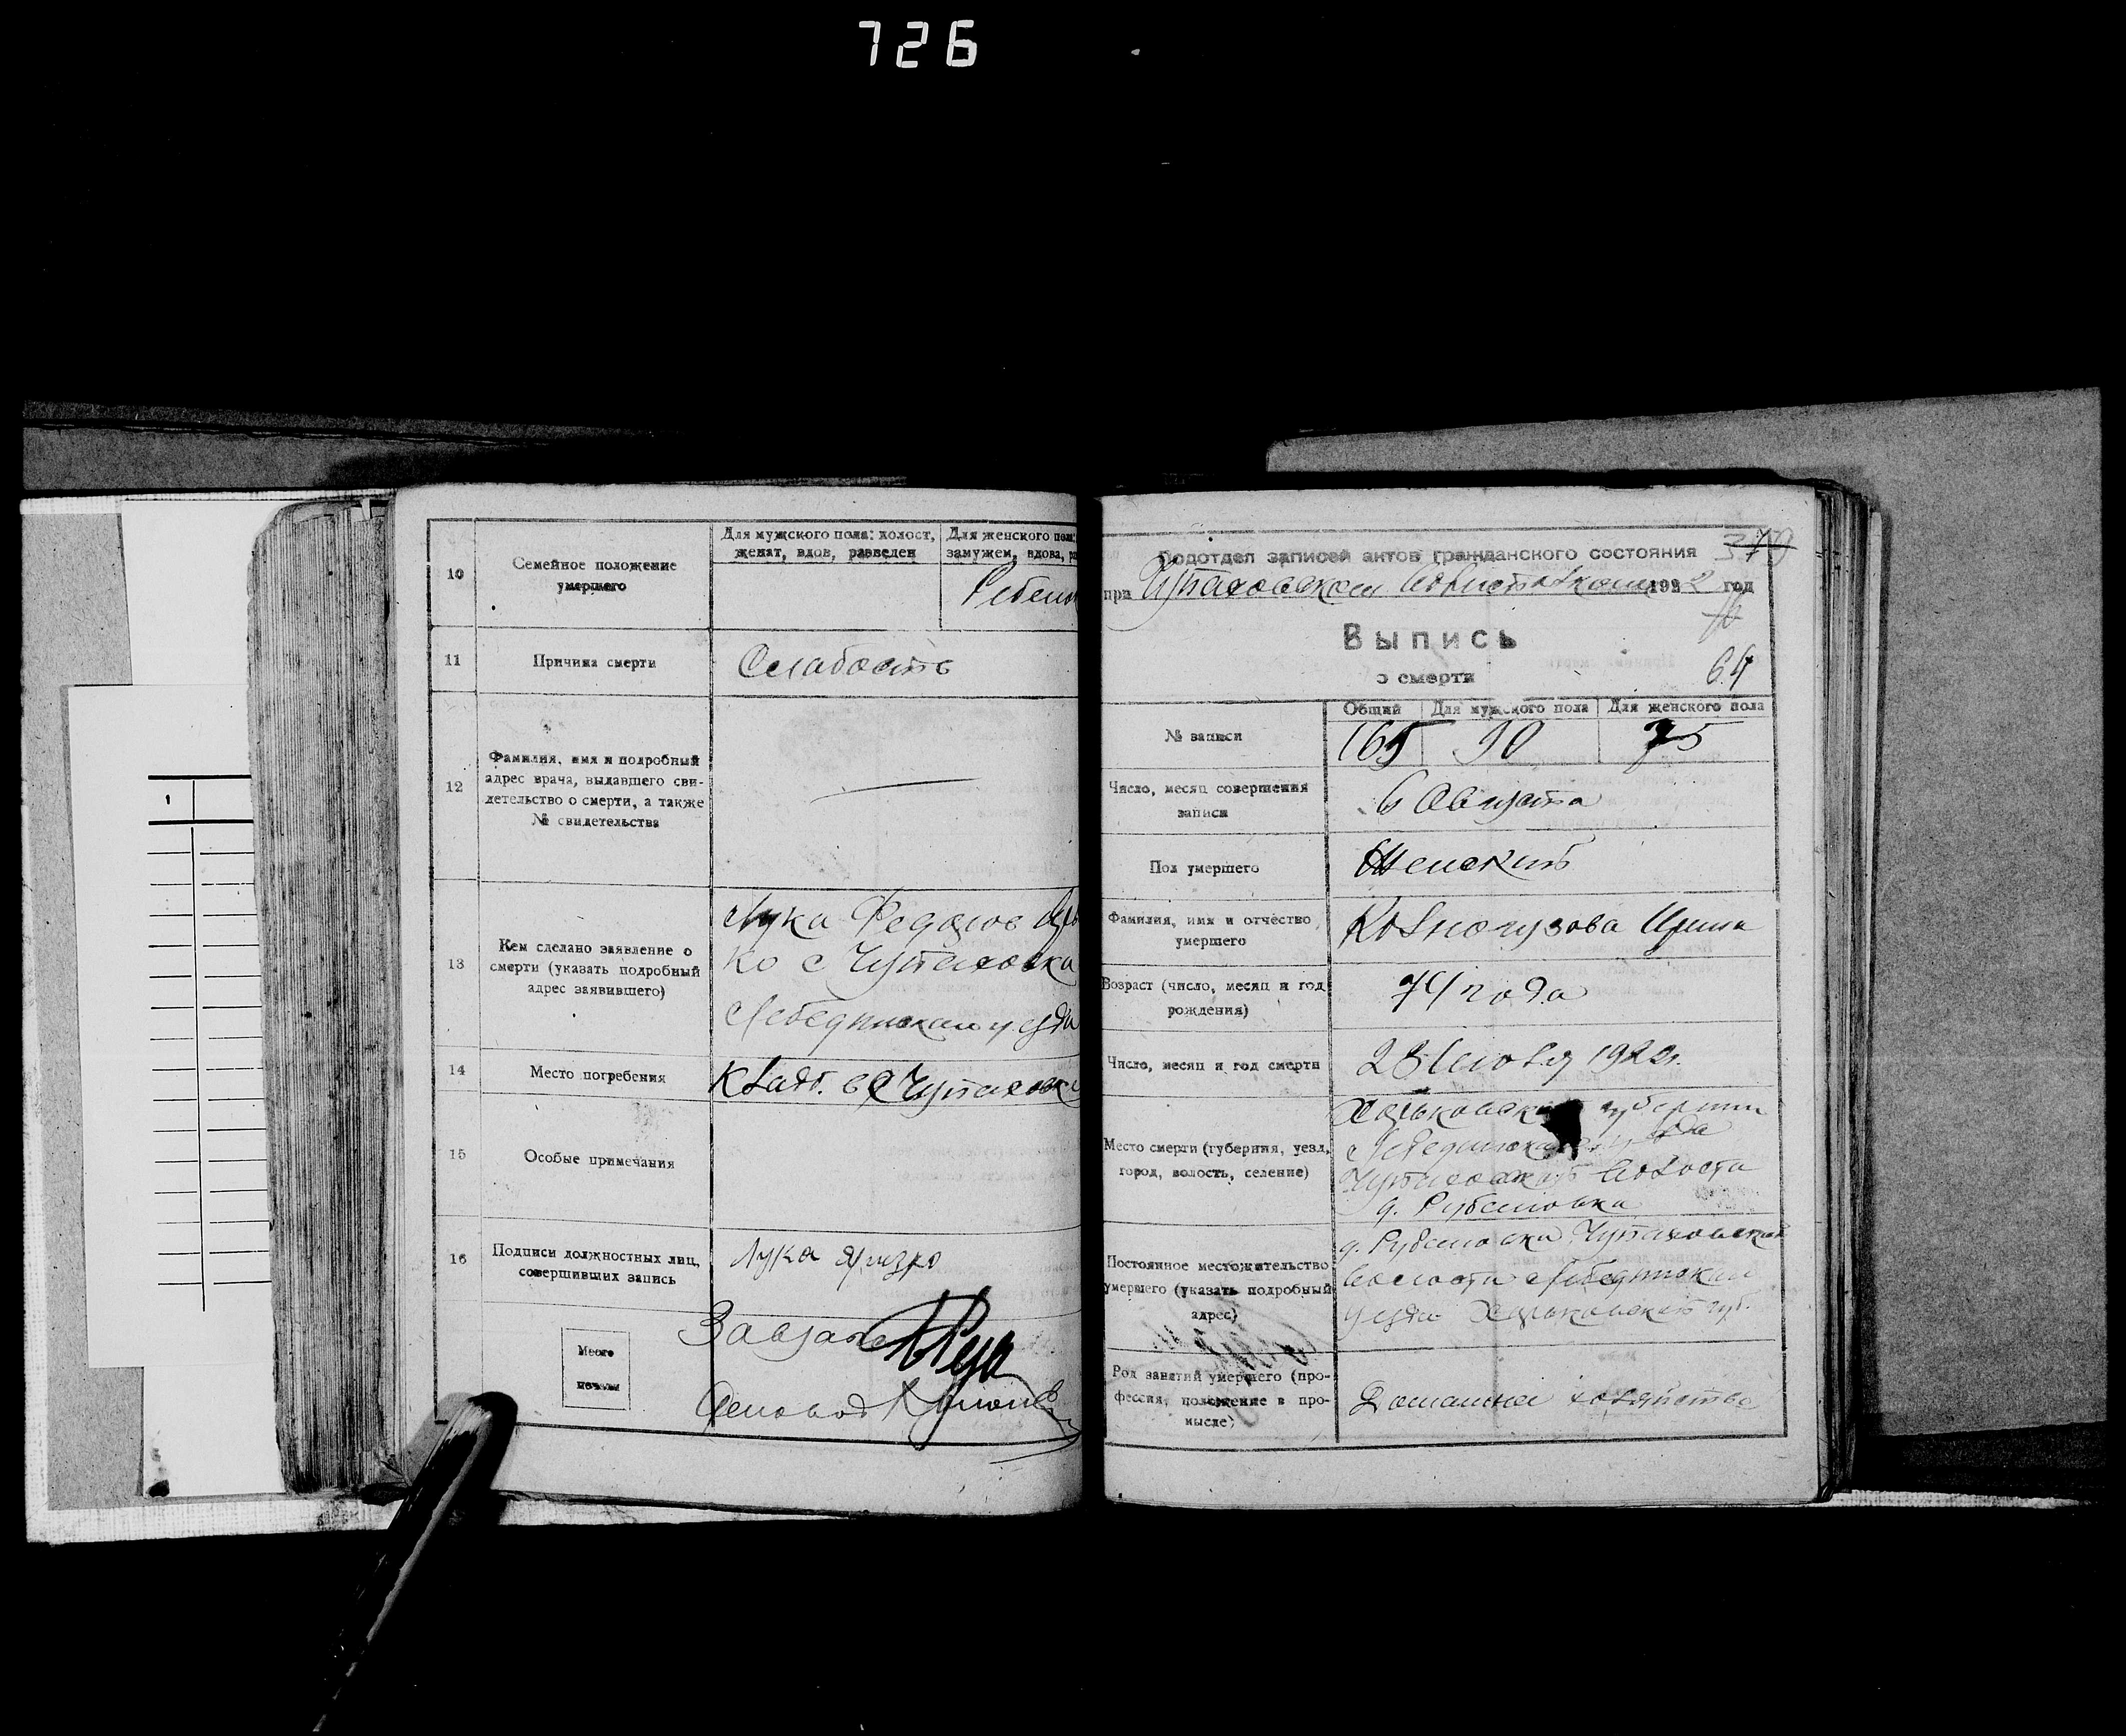 726
10
Семейное положение
умершего
Для мужского пола: холост,
женат, вдов, разведен
Для женского пола:
замужем, вдова, ра
Ребенок
11
Причина смерти
Слабость
12
Фамилия, имя и подробный
адрес врача, выдавшего сви-
детельство о смерти, а также
№ свидетельства
13
Кем сделано заявление о
смерти (указать подробный
адрес заявившего)
Лука Федоров
ко с Чупаховка
Лебединскаго уезда
14
Место погребения
Кладб. в с Чупаховке
15
Особые примечания
16
Подписи должностных лиц,
совершивших запись
Лука
Место
печати
Завзагс
Делопод
Подотдел записей актов гражданского состояния
379
при Чупаховском Волисполкоме 1922 год
Выпись
о смерти
64
Общий
Для мужского пола
Для женского пола
№ записи
165
90
75
Число, месяц совершения
записи
6 Августа
Пол умершего
Женский
Фамилия, имя и отчество
умершего
Колногузова Ирина
Возраст (число, месяц и год
рождения)
74 года
Число, месяц и год смерти
28 Июля 1922 г.
Место смерти (губерния, уезд,
город, волость, селение)
Харьковской губернии
Лебединскаго уезда
Чупаховской волости
д. Рубановка
Постоянное местожительство
умершего (указать подробный
адрес)
д. Рубановка Чупаховской
волости Лебединскаго
уезда Харьковской губ.
Род занятий умершего (про-
фессия, положение в про-
мысле)
Домашнее хозяйство